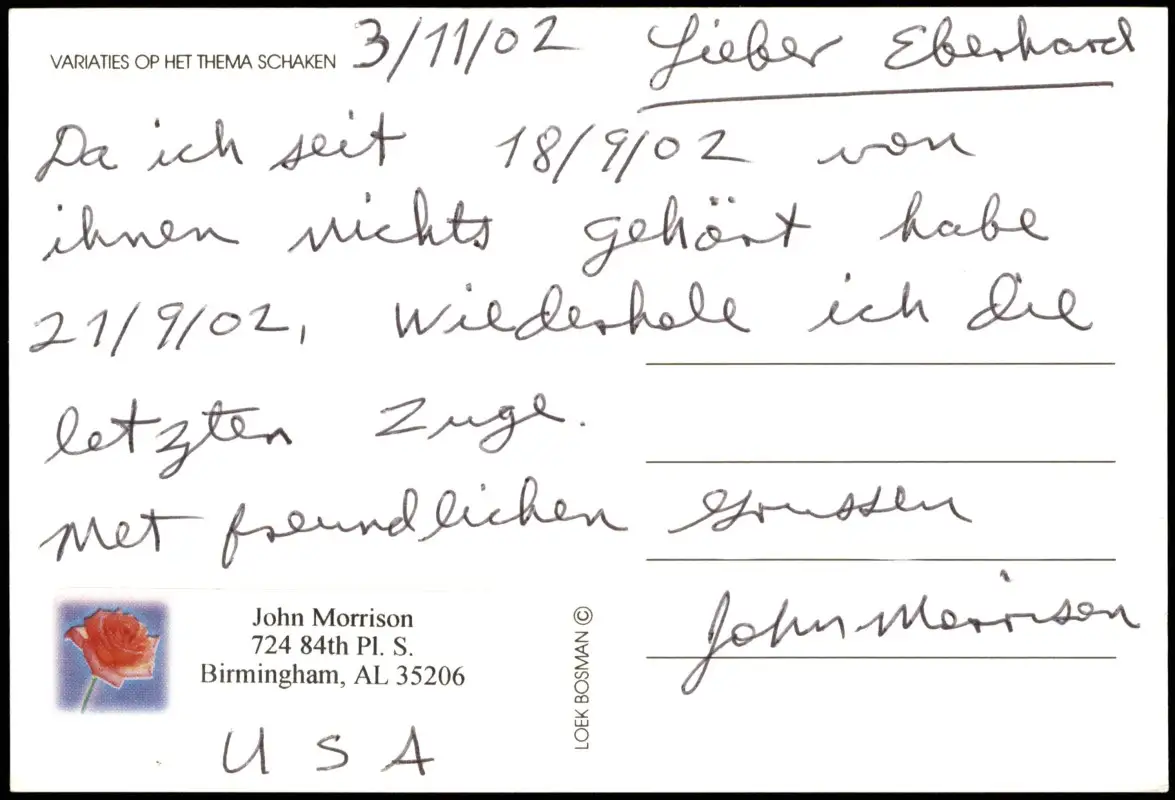 VARIATIES OP HET THEMA SCHAKEN 3/11/02 Lieber Eberhard
Da ich seit 18/9/02 von
ihnen nichts gehört habe
21/9/02, Wiederhole ich die
letzten Zuge.
Met freundlichen Grussen
John Morrison
John Morrison
724 84th Pl. S.
Birmingham, AL 35206
USA
LOEK BOSMAN ©